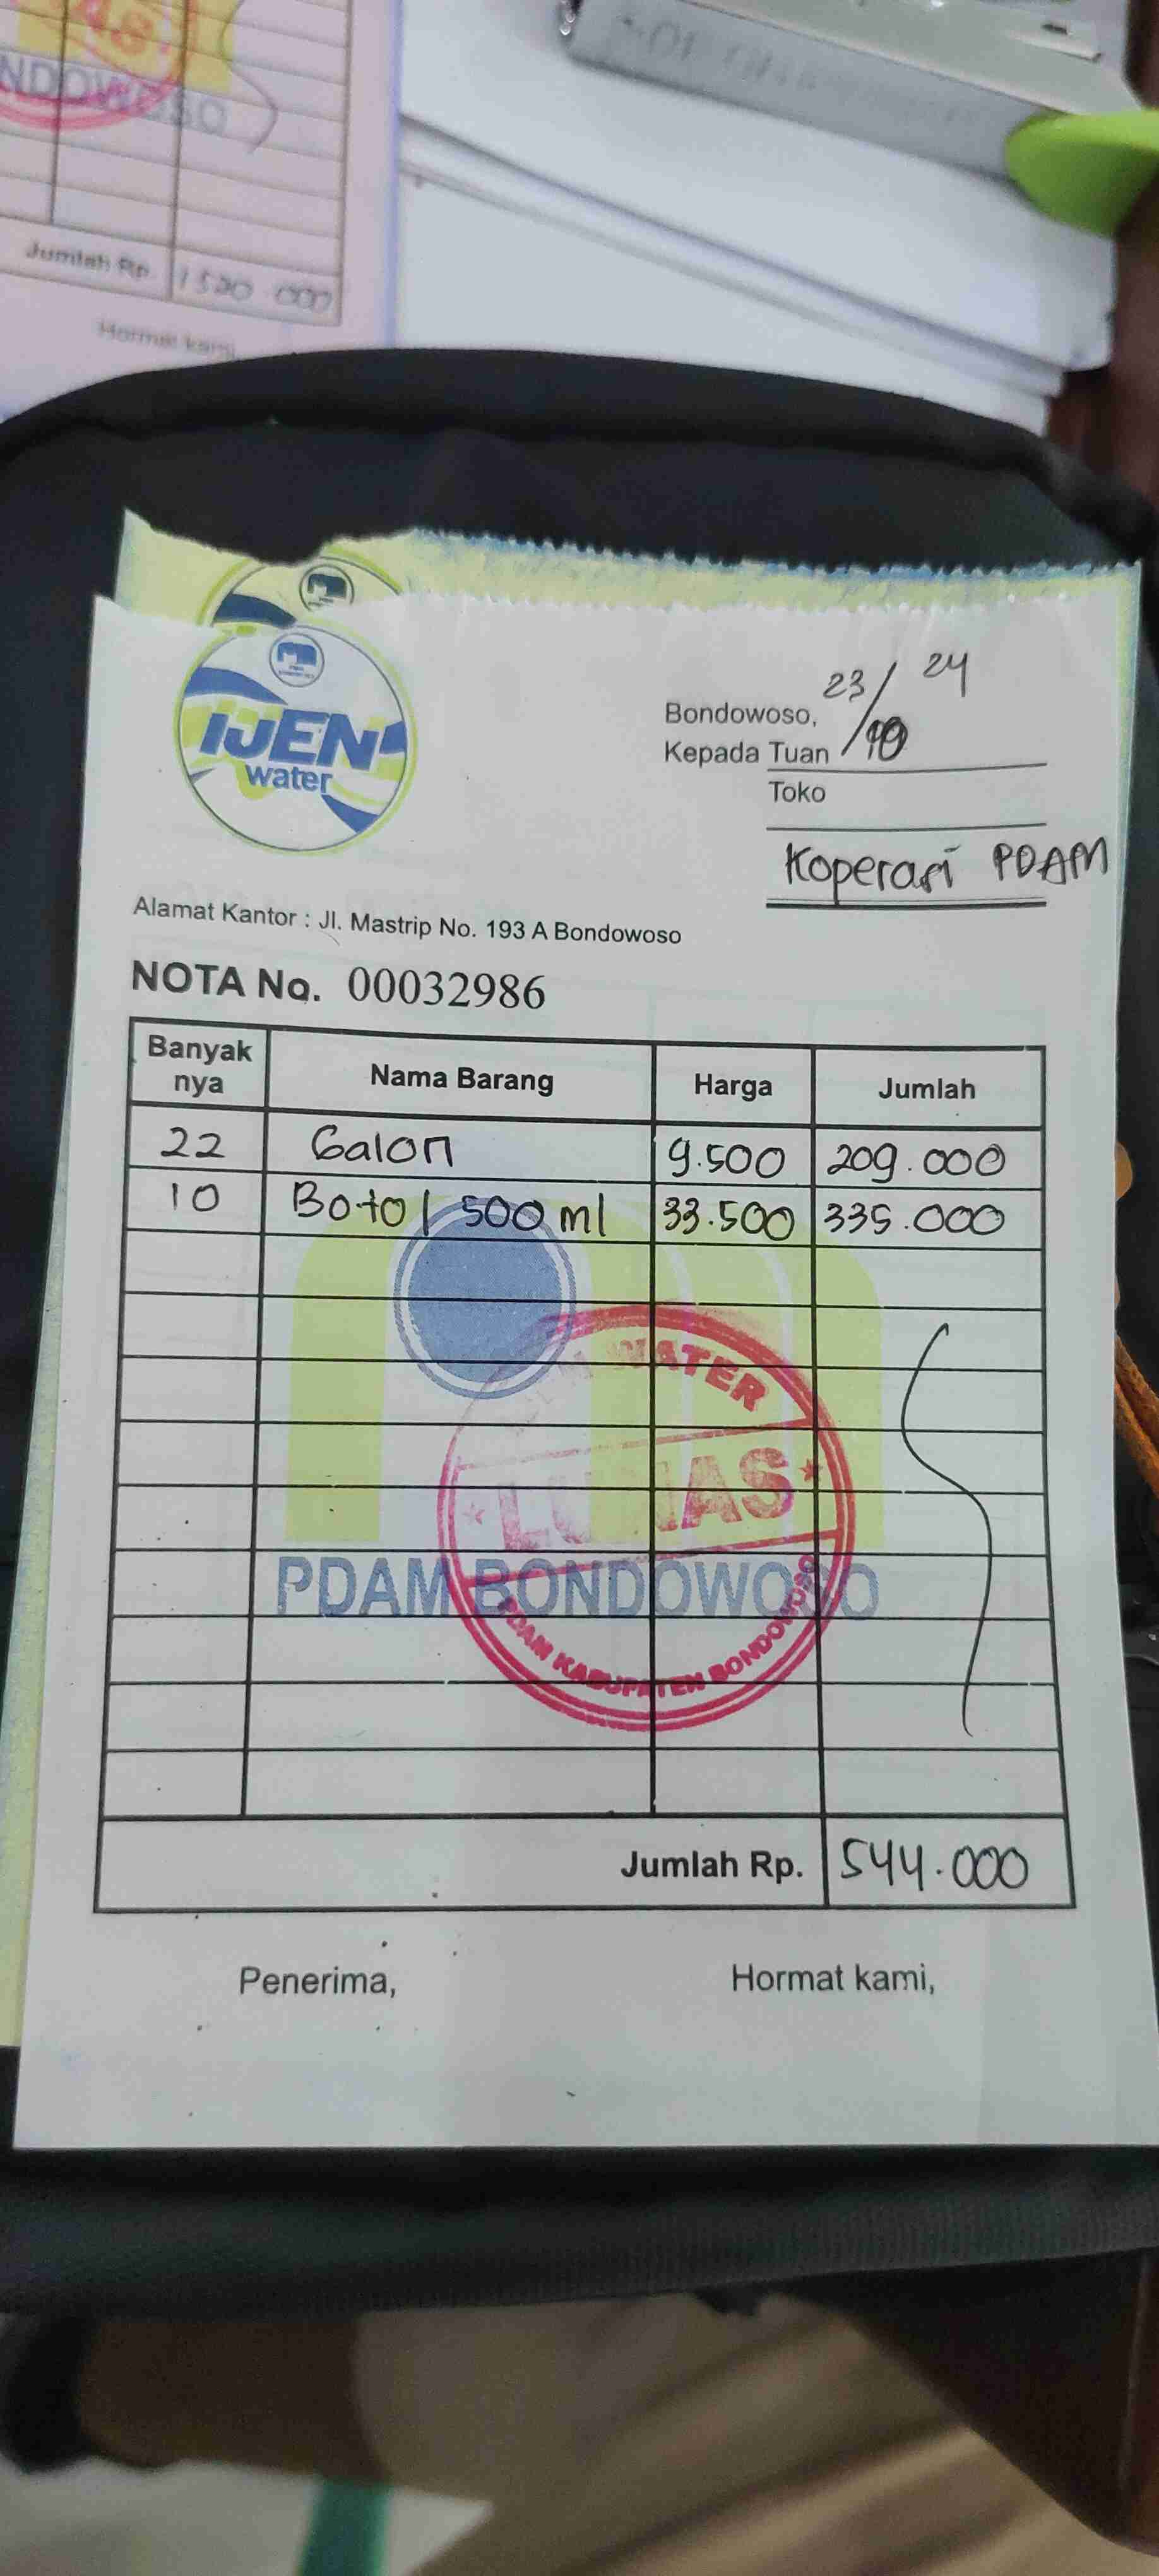 NDOWOSO
Jumlah Rp. 1520.000
Hormat kami,
IJEN
water
Bondowoso, 23/10 24
Kepada Tuan
Toko
Koperasi PDAM
Alamat Kantor : Jl. Mastrip No. 193 A Bondowoso
NOTA No. 00032986
Banyak nya Nama Barang Harga Jumlah
22 Galon 9.500 209.000
10 Botol 500 ml 33.500 335.000
WATER
LUNAS
PDAM BONDOWOSO
PDAM KABUPATEN BONDOWOSO
Jumlah Rp. 544.000
Penerima, Hormat kami,